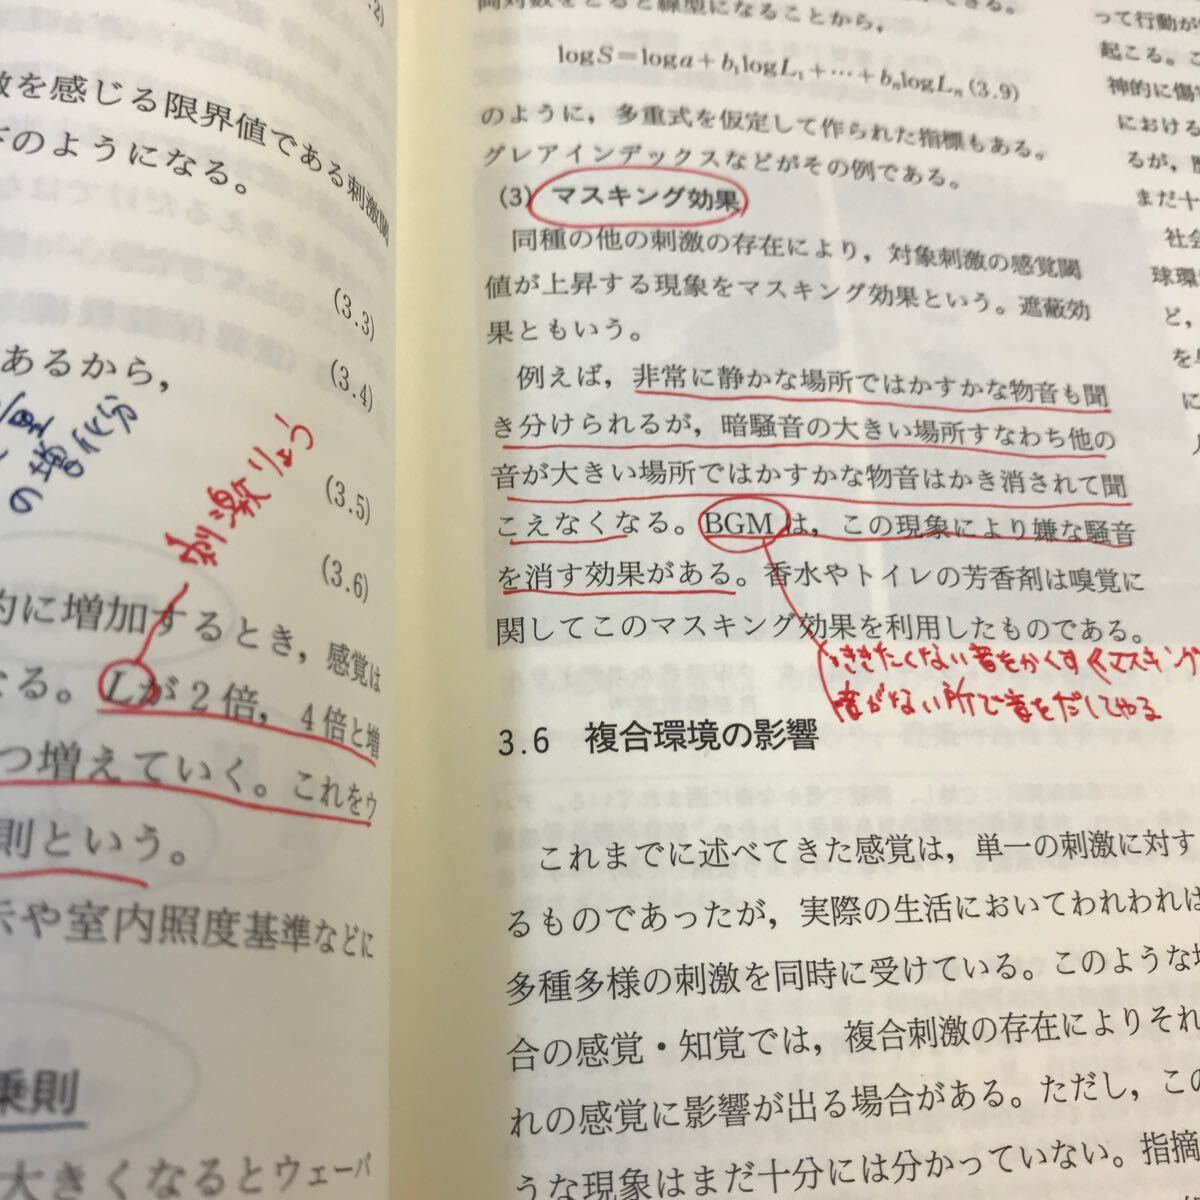 激を感じる限界値である刺激閾
下のようになる。
(3.3)
(3.4)
あるから,
量
の増加分
刺激りょう
(3.5)
(3.6)
的に増加するとき, 感覚は
なる。Lが2倍, 4倍と増
つ増えていく。これをウ
則という。
示や室内照度基準などに
乗則
大きくなるとウェーバ
両対数をとると線型になることから,
logS=loga+b₁logL₁+…+bₙlogLₙ (3.9)
のように, 多重式を仮定して作られた指標もある。
グレアインデックスなどがその例である。
(3) マスキング効果
同種の他の刺激の存在により, 対象刺激の感覚閾
値が上昇する現象をマスキング効果という。遮蔽効
果ともいう。
例えば, 非常に静かな場所ではかすかな物音も聞
き分けられるが, 暗騒音の大きい場所すなわち他の
音が大きい場所ではかすかな物音はかき消されて聞
こえなくなる。BGMは, この現象により嫌な騒音
を消す効果がある。香水やトイレの芳香剤は嗅覚に
関してこのマスキング効果を利用したものである。
ききたくない音をかくす マスキング
音がない所で音をだしてやる
3.6 複合環境の影響
これまでに述べてきた感覚は, 単一の刺激に対す
るものであったが, 実際の生活においてわれわれは
多種多様の刺激を同時に受けている。このような場
合の感覚・知覚では, 複合刺激の存在によりそれ
れの感覚に影響が出る場合がある。ただし, この
うな現象はまだ十分には分かっていない。指摘
って行動が
起こる。こ
神的に傷
における
るが,
まだ十
社会
球環
ど,
を
に